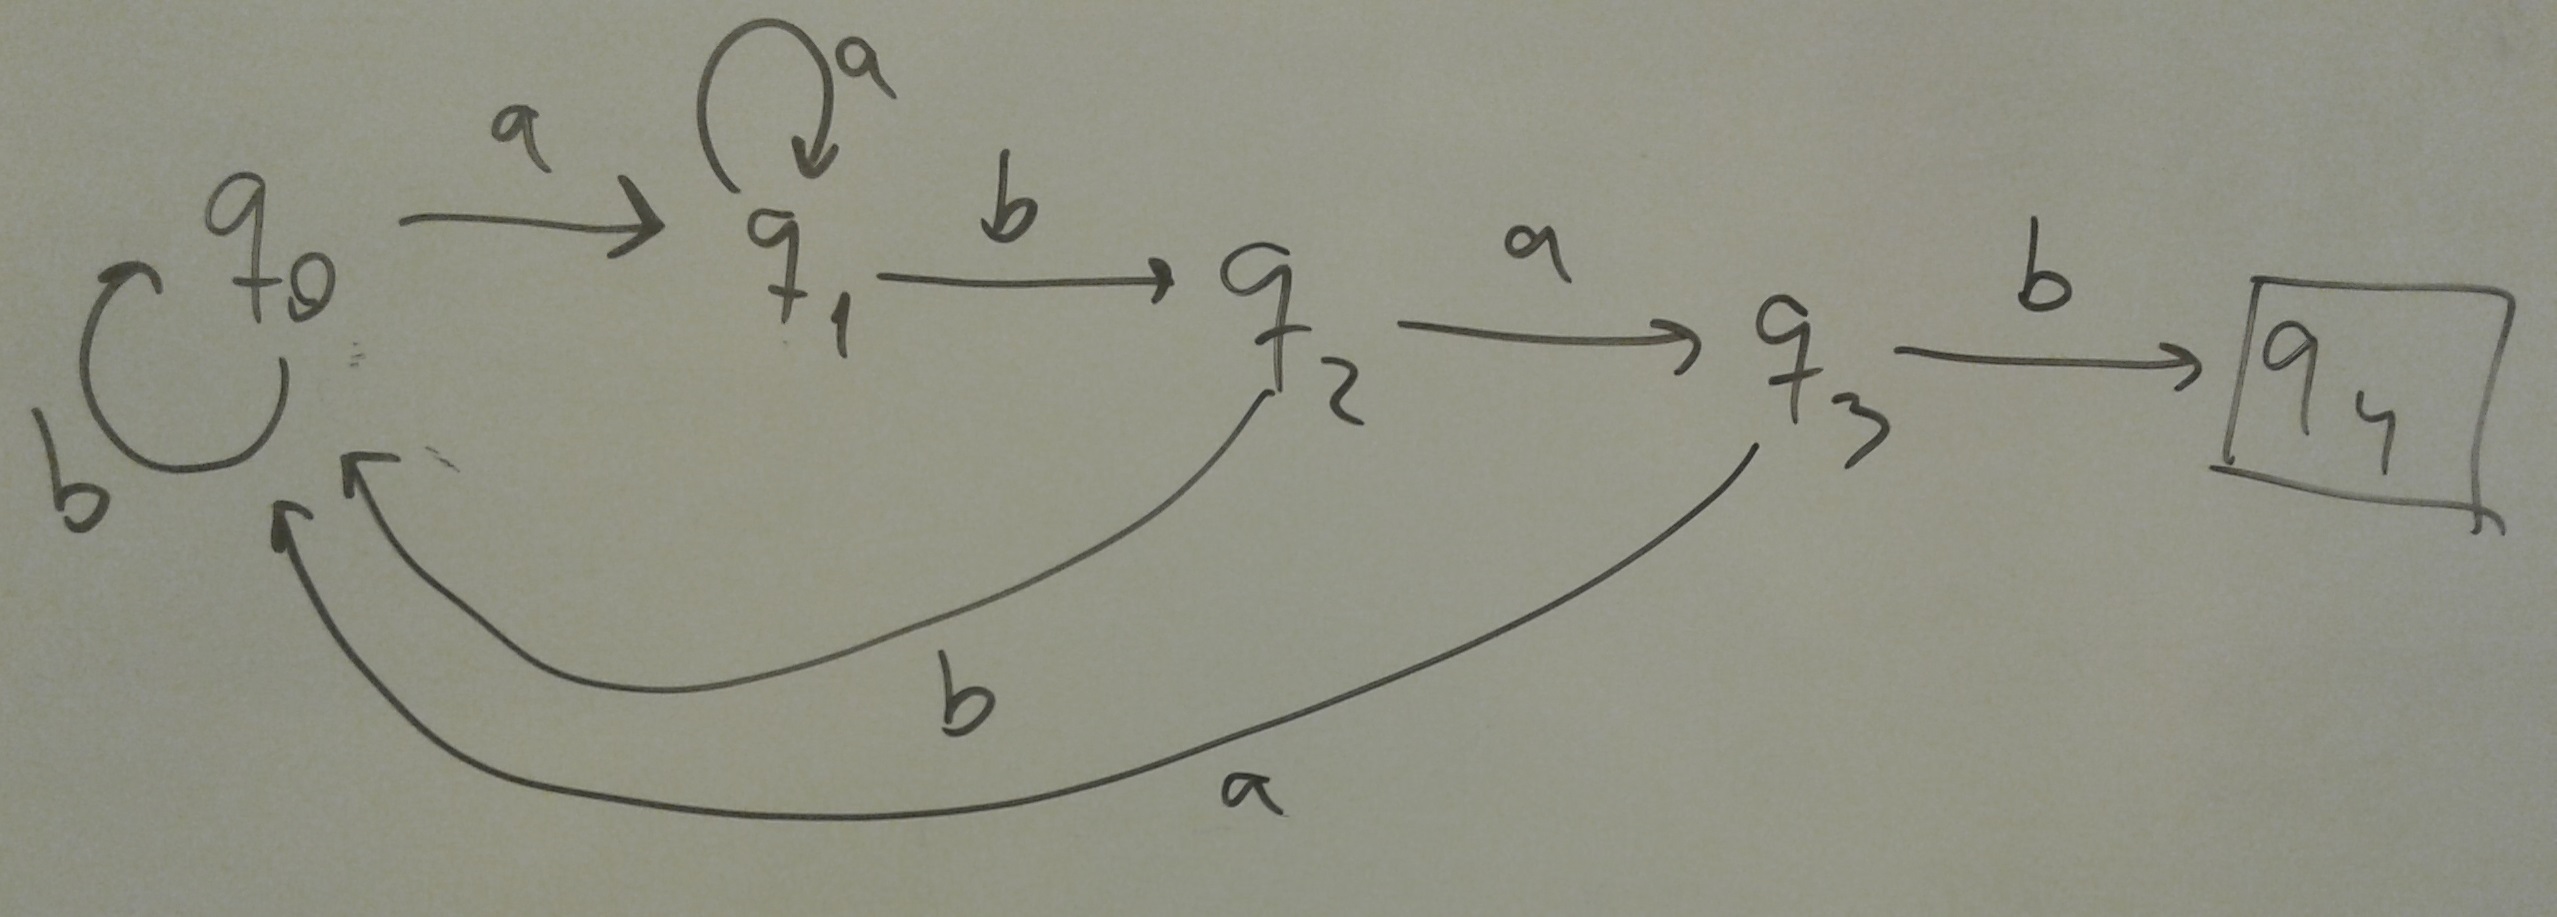 a
a
q0
q1
b
q2
a
q3
b
q4
b
b
a